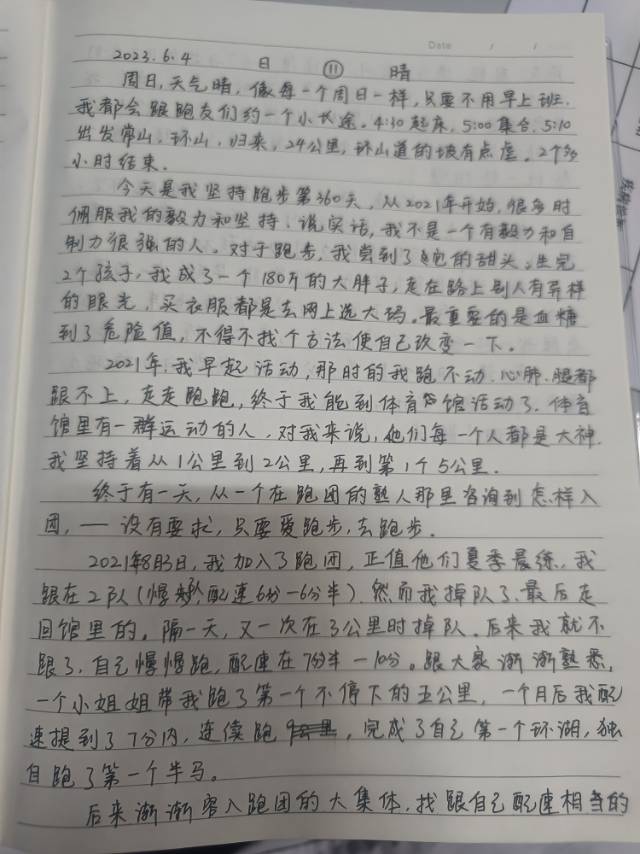 Date / /
2023.6.4 日 ⑪ 晴
周日,天气晴,像每一个周日一样,只要不用早上班,
我都会跟跑友们约一个小长途。4:30起床,5:00集合,5:10
出发常山,环山,归来,24公里,环山道的坡有点虐。2个多
小时结束。
今天是我坚持跑步第360天,从2021年开始,很多时
佩服我的毅力和坚持,说实话,我不是一个有毅力和自
制力很强的人。对于跑步,我尝到了它的甜头。生完
2个孩子,我成了一个180斤的大胖子,走在路上别人有异样
的眼光,买衣服都是去网上选大码。最重要的是血糖
到了危险值,不得不找个方法使自己改变一下。
2021年,我早起活动,那时的我跑不动,心肺,腿都
跟不上,走走跑跑,终于我能到体育馆活动了,体育
馆里有一群运动的人,对我来说,他们每一个人都是大神.
我坚持着从1公里到2公里,再到第1个5公里.
终于有一天,从一个在跑团的熟人那里咨询到怎样入
团,——没有要求,只要爱跑步,去跑步.
2021年8月3日,我加入了跑团,正值他们夏季晨练,我
跟在2队(慢跑,配速6分-6分半).然而我掉队了,最后走
回馆里的。隔一天,又一次在3公里时掉队.后来我就不
跟了,自己慢慢跑,配速在7分半-10分。跟大家渐渐熟悉,
一个小姐姐带我跑了第一个不停下的五公里,一个月后我配
速提到了7分内,连续跑,完成了自己第一个环湖,独
自跑了第一个半马。
后来渐渐容入跑团的大集体,找跟自己配速相当的